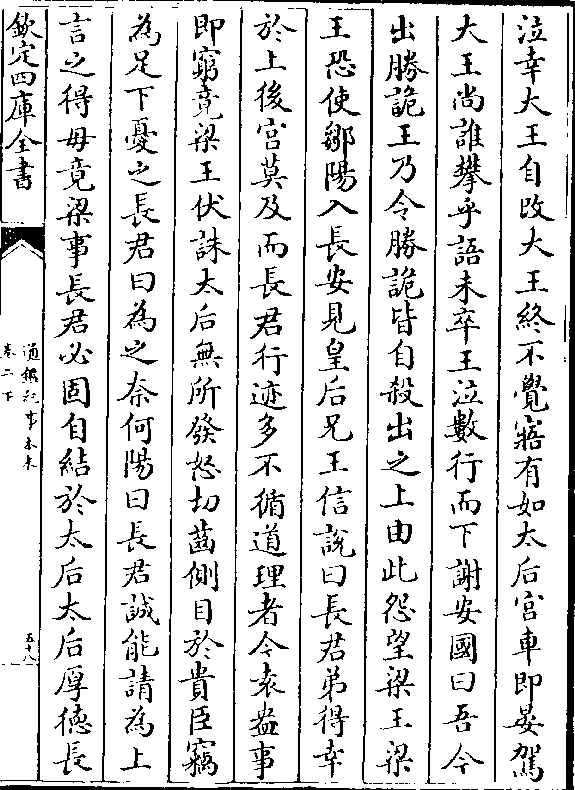 泣幸大王自改大王終不覺寤有如太后宮車即晏駕
大王尚誰攀乎語未卒王泣數行而下謝安國曰吾今
出勝詭王乃令勝詭皆自殺出之上由此怨望梁王梁
王恐使鄒陽入長安見皇后兄王信說曰長君弟得幸
於上後宮莫及而長君行迹多不循道理者今袁盎事
即窮竟梁王伏誅太后無所發怒切齒側目於貴臣竊
為足下憂之長君曰為之奈何陽曰長君誠能請為上
言之得毋竟梁事長君必固自結於太后太后厚德長
欽定四庫全書
通鑑紀事本末
卷二下
五十八